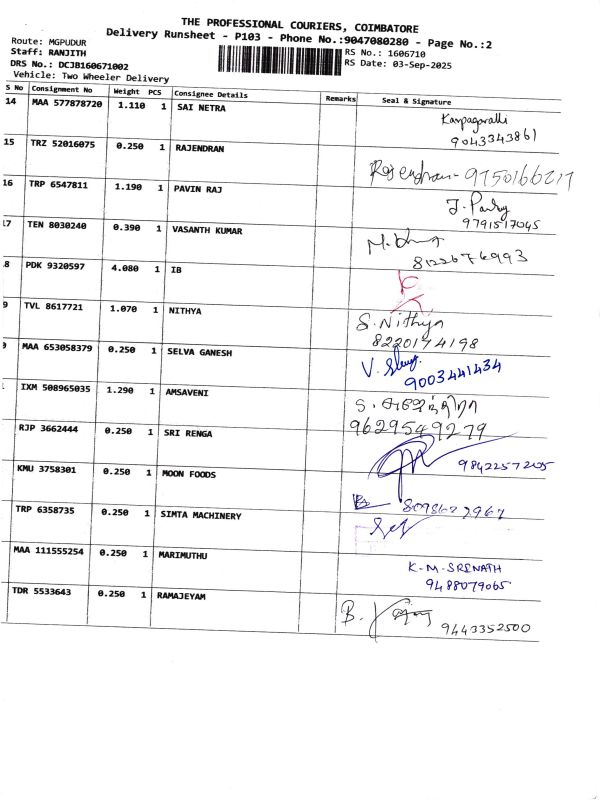 THE PROFESSIONAL COURIERS, COIMBATORE
Delivery Runsheet - P103 - Phone No.:9047080280 - Page No.:2
Route: MGPUDUR
Staff: RANJITH
RS No.: 1606710
DRS No.: DCJB160671002
RS Date: 03-Sep-2025
Vehicle: Two Wheeler Delivery
S No Consignment No Weight PCS Consignee Details Remarks Seal & Signature
14 MAA 577878720 1.110 1 SAI NETRA
9043343861
15 TRZ 52016075 0.250 1 RAJENDRAN
Rajendran - 9750166217
16 TRP 6547811 1.190 1 PAVIN RAJ
9791517045
17 TEN 8030240 0.390 1 VASANTH KUMAR
8122676993
8 PDK 9320597 4.080 1 IB
9 TVL 8617721 1.070 1 NITHYA
S. Nithya
8220174198
MAA 653058379 0.250 1 SELVA GANESH
9003441434
IXM 508965035 1.290 1 AMSAVENI
9629549279
RJP 3662444 0.250 1 SRI RENGA
9842257205
KMU 3758301 0.250 1 MOON FOODS
8098627967
TRP 6358735 0.250 1 SIMTA MACHINERY
MAA 111555254 0.250 1 MARIMUTHU
K-M-SRINATH
9488079065
TDR 5533643 0.250 1 RAMAJEYAM
B.
9443352500